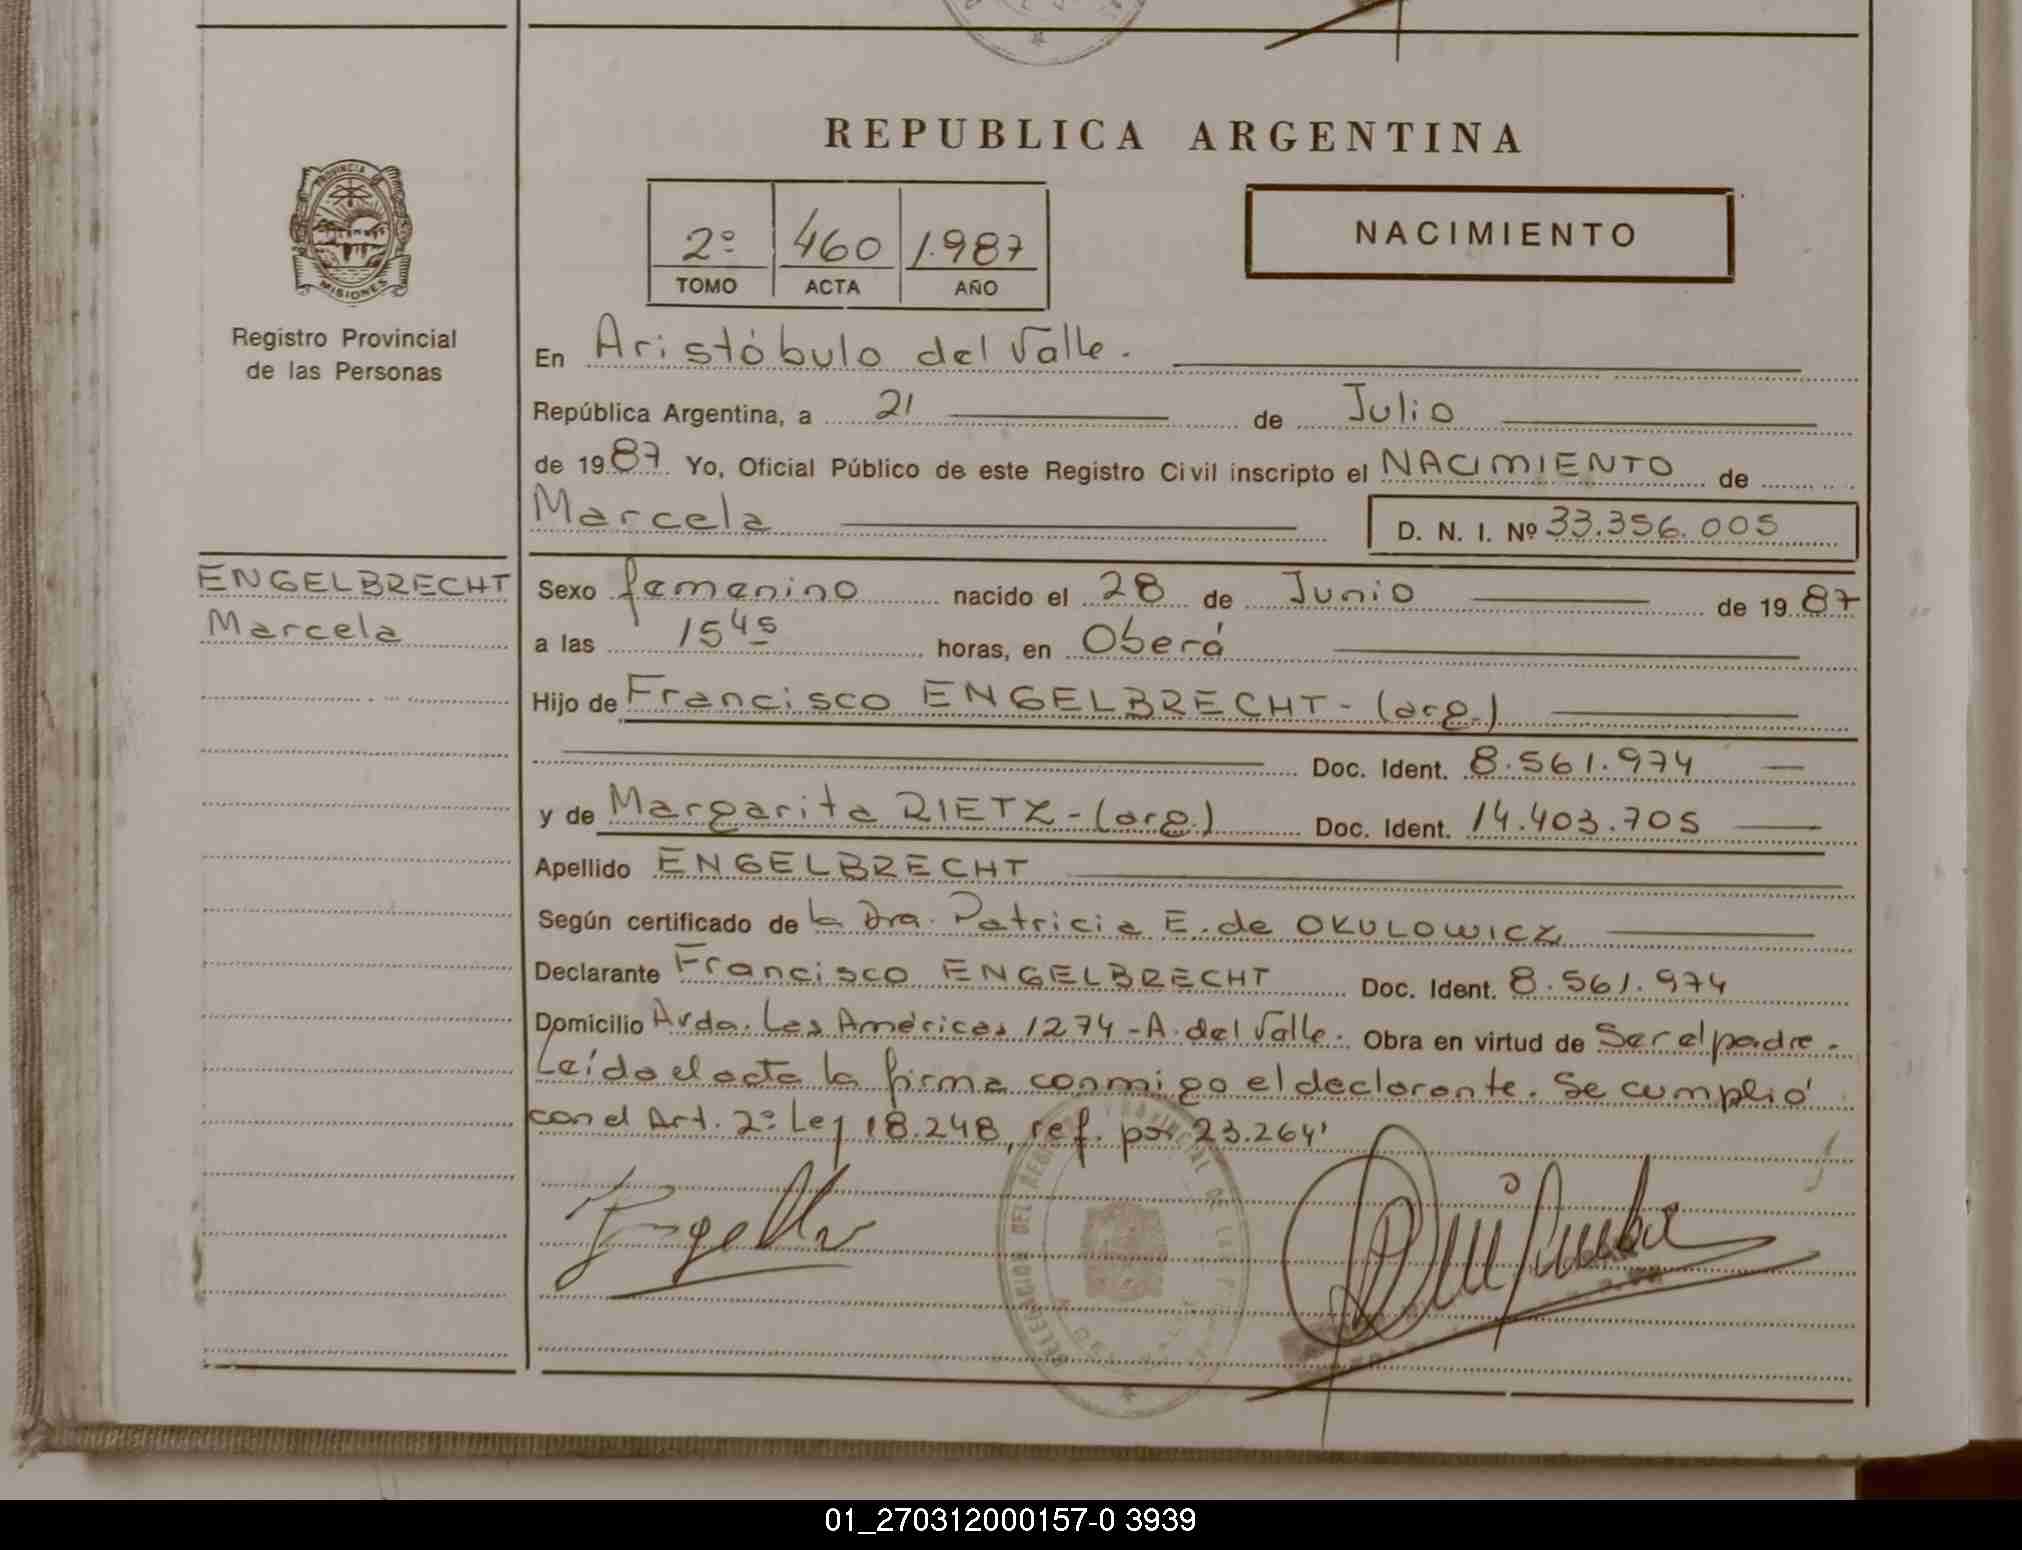 REPUBLICA ARGENTINA
PROVINCIA
MISIONES
Registro Provincial
de las Personas
2º 460 1.987
TOMO ACTA AÑO
NACIMIENTO
En Aristóbulo del Valle.
República Argentina, a 21 de Julio
de 1987. Yo, Oficial Público de este Registro Civil inscripto el NACIMIENTO de
Marcela D. N. I. Nº 33.356.005
ENGELBRECHT
Marcela
Sexo femenino nacido el 28 de Junio de 1987
a las 15 45 horas, en Oberá
Hijo de Francisco ENGELBRECHT - (arg.)
Doc. Ident. 8.561.974
y de Margarita RIETZ - (arg.) Doc. Ident. 14.403.705
Apellido ENGELBRECHT
Según certificado de la Dra. Patricia E. de OKULOWICZ
Declarante Francisco ENGELBRECHT Doc. Ident. 8.561.974
Domicilio Avda. Las Américas 1274 - A. del Valle. Obra en virtud de Ser el padre.
Leída el acta la firma conmigo el declarante. Se cumplió
con el Art. 2º Ley 18.248, ref. por 23.264'
01_270312000157-0 3939